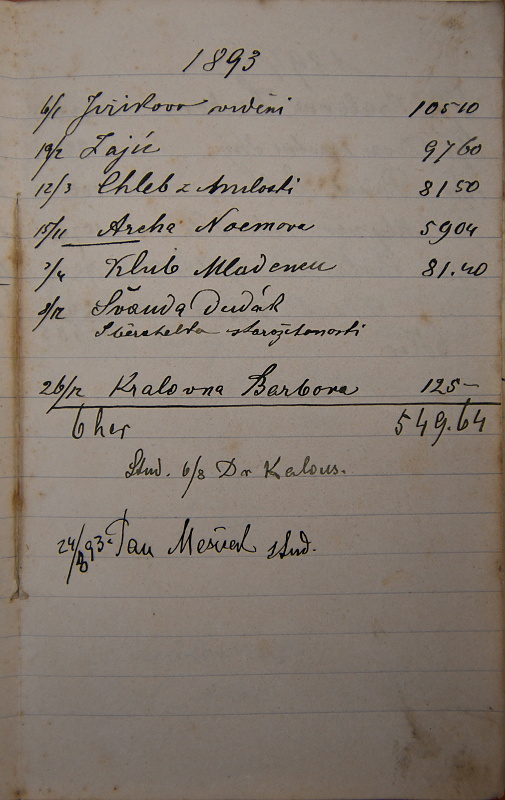 1893
6/1 Jiříkovo vidění 105 10
19/2 Zajíc 97 60
12/3 Chléb z milosti 81 50
15/11 Archa Noemova 59 04
2/4 Klub Mladenců 81.40
8/12 Švanda Dudák
Sběratelka starožitností
26/12 Kralovna Barbora 125 –
6 her 549.64
Stud. 6/8 Dr Kalous.
24/8 93. Pan Měsíček stud.